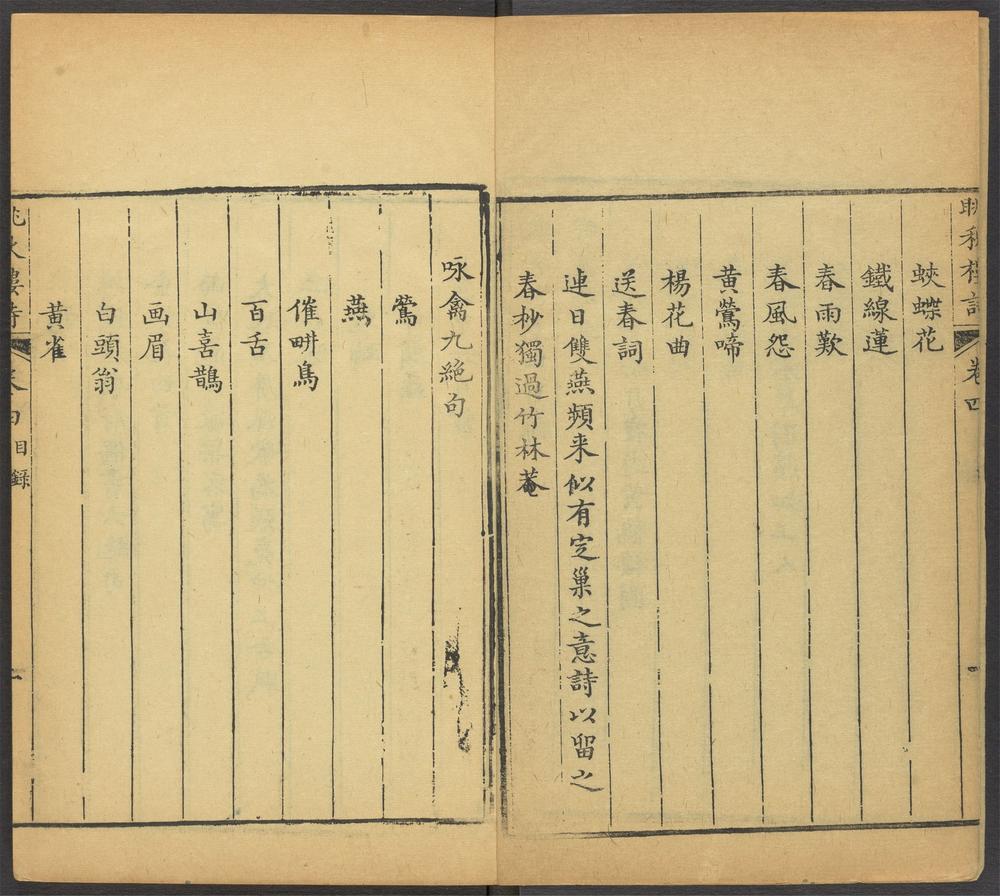 眺秋樓詩 卷四
蛺蝶花
鐵線蓮
春雨歎
春風怨
黃鶯啼
楊花曲
送春詞
連日雙燕頻来似有定巢之意詩以留之
春杪獨過竹林菴
咏禽九絕句
鶯
燕
催畊鳥
百舌
山喜鵲
画眉
白頭翁
黃雀
眺秋樓詩 卷四 目録